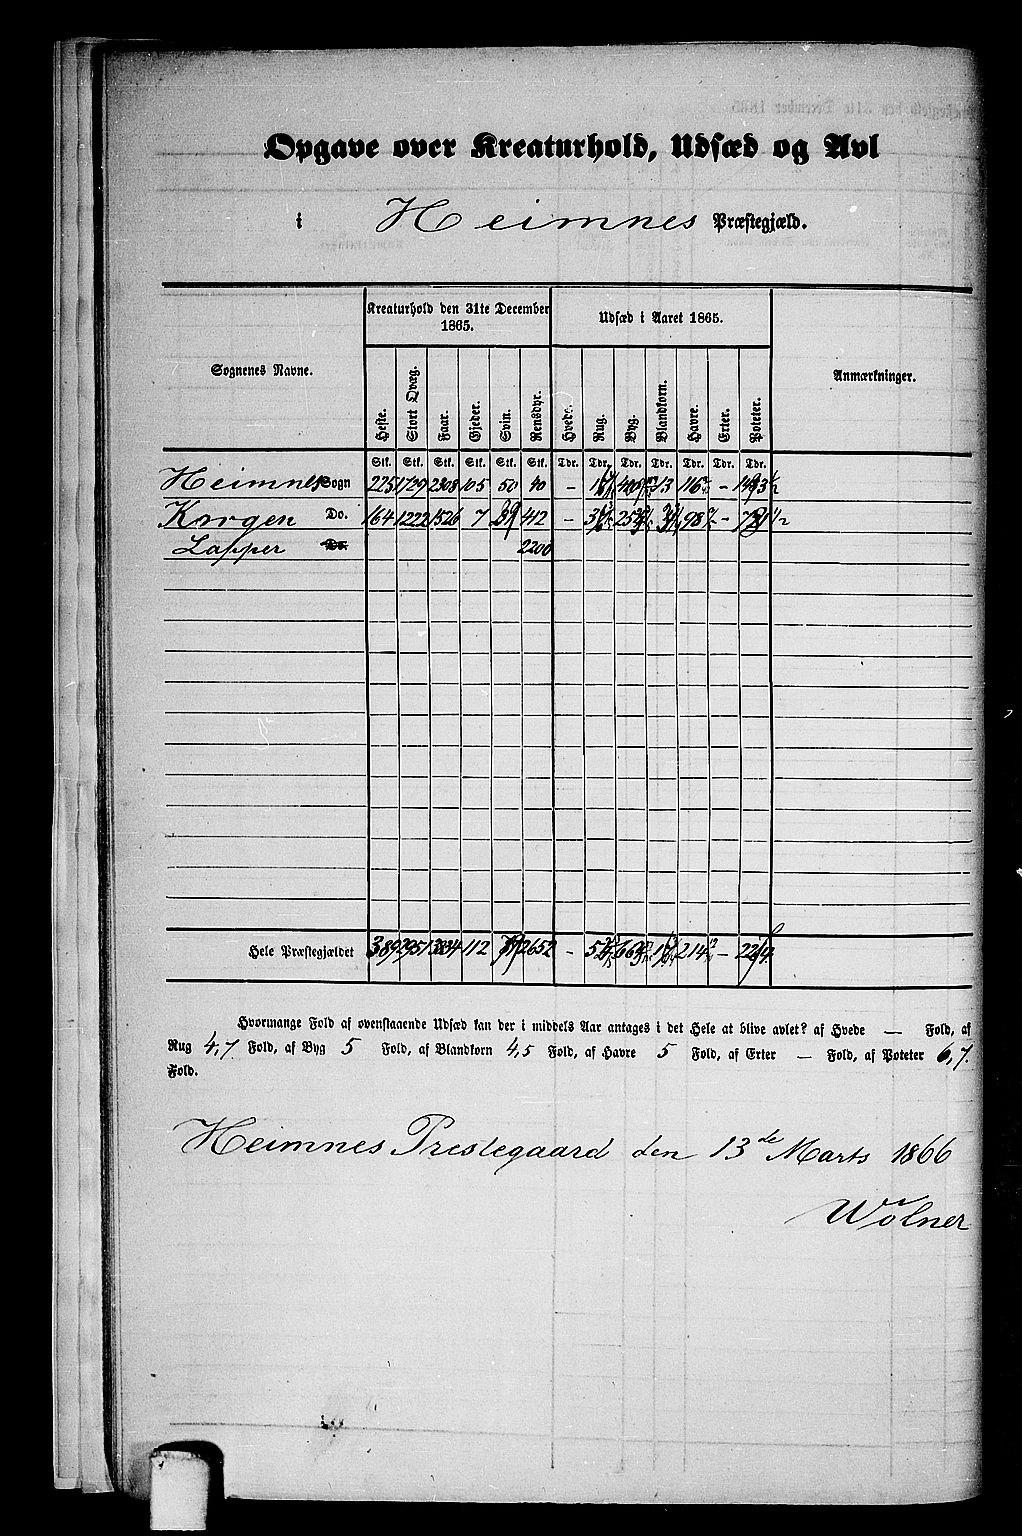 Opgave over Kreaturhold, Udsæd og Avl
i Heimnes Præstegjæld.
Sognenes Navne. Kreaturhold den 31te December 1865. Udsæd i Aaret 1865. Anmærkninger.
Heste. Stort Qvæg. Faar. Gjeder. Svin. Rensdyr. Hvede. Rug. Byg. Blandkorn. Havre. Erter. Poteter.
Stk. Stk. Stk. Stk. Stk. Stk. Tdr. Tdr. Tdr. Tdr. Tdr. Tdr. Tdr.
Heimnes Sogn 225 1729 2308 105 50 40 – 13 116 –
Korgen Do. 164 1222 1526 7 412 – 98 –
Lapper Do. 2200
Hele Præstegjældet 389 2951 112 2652 – 214 –
Hvormange Fold af ovenstaaende Udsæd kan der i middels Aar antages i det Hele at blive avlet? af Hvede — Fold, af
Rug 4,7 Fold, af Byg 5 Fold, af Blandkorn 4,5 Fold, af Havre 5 Fold, af Erter — Fold, af Poteter 6,7.
Fold.
Heimnes Prestegaard den 13de Marts 1866
Wolner